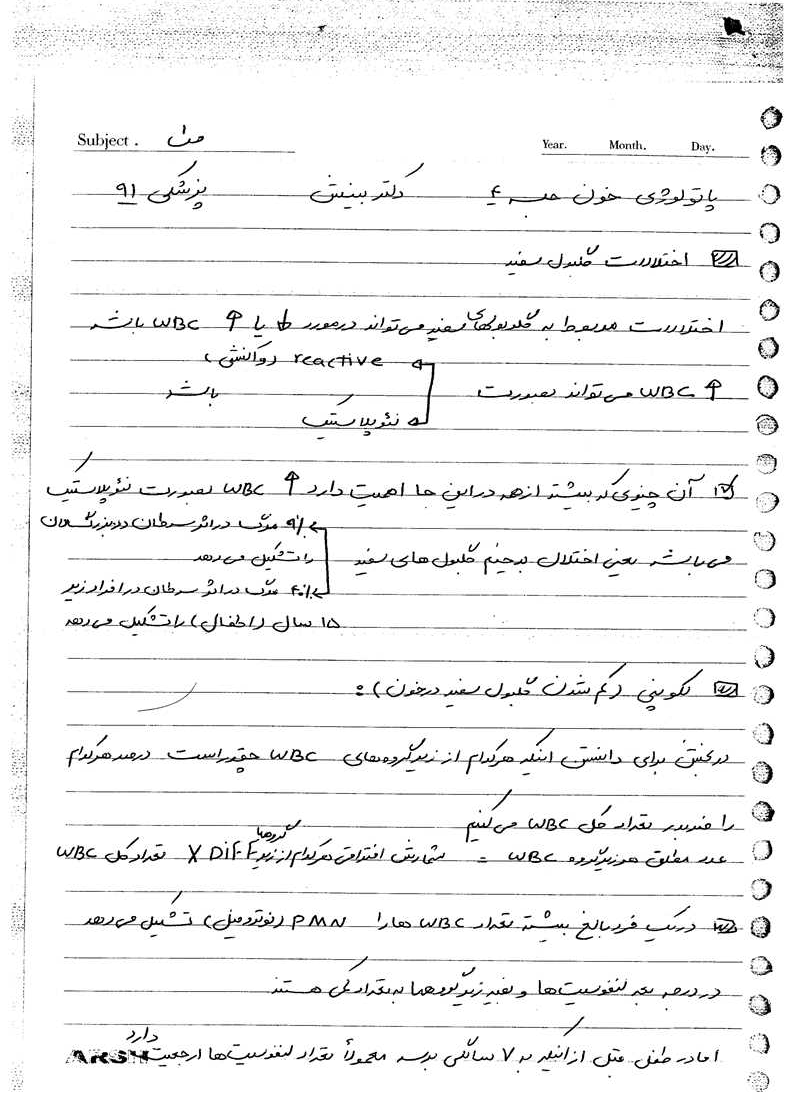 Subject . Year. Month. Day.
پاتولوژی خون جلسه ۴ دکتر بینش پزشکی ۹۱
اختلالات گلبول سفید
اختلالات مربوط به گلبولهای سفید می‌تواند درمورد ↓ یا ↑ WBC باشد
reactive (واکنشی)
↑ WBC می‌تواند بصورت باشد
نئوپلاستیک
آن چیزی که بیشتر از همه در این جا اهمیت دارد ↑ WBC بصورت نئوپلاستیک
۹٪ مرگ در اثر سرطان در بزرگسالان
می‌باشد یعنی اختلال بدخیم گلبول های سفید
را تشکیل می‌دهد
۴۰٪ مرگ در اثر سرطان در افراد زیر
۱۵ سال (اطفال) را تشکیل می‌دهد
لکوپنی (کم شدن گلبول سفید درخون):
در بخش برای دانستن اینکه هرکدام از زیرگروه‌های WBC چقدر است درصد هرکدام
را ضربدر تعداد کل WBC می‌کنیم
عدد مطلق هر زیرگروه WBC = شمارش افتراقی هرکدام از زیر گروهها Diff X تعداد کل WBC
در یک فرد بالغ بیشتر تعداد WBC ها را PMN (نوتروفیل) تشکیل می‌دهد
در درجه بعد لنفوسیت‌ها و بقیه زیرگروهها به تعداد کمی هستند
اما در طفل قبل از آنکه به ۷ سالگی برسد معمولاً تعداد لنفوسیت‌ها ارجحیت دارد
ARSH